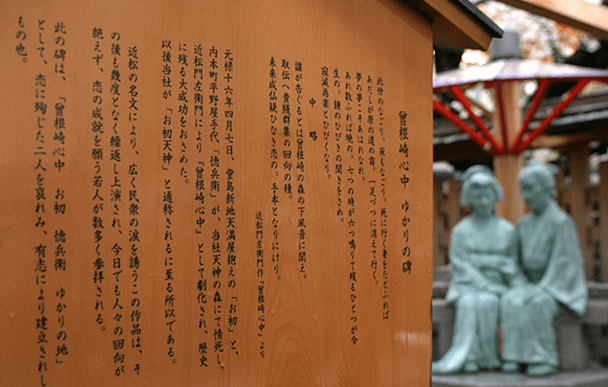 曾根崎心中 ゆかりの碑
此世のなごり。夜もなごり。死に行く身をたとふれば
あだしが原の道の霜。一足づつに消えて行く。
夢の夢こそあはれなれ。
あれ数ふれば暁の。七つの時が六つ鳴りて残るひとつが今
生の。鐘のひびきの聞きをさめ。
寂滅為楽とひびくなり。
中略
誰が告ぐるとは曾根崎の森の下風音に聞え。
取伝へ貴賤群集の回向の種。
未来成仏疑ひなき恋の。手本となりにけり。
近松門左衛門作「曾根崎心中」より
元禄十六年四月七日、堂島新地天満屋抱えの「お初」と、
内本町平野屋手代「徳兵衛」が、当社天神の森にて情死し、
近松門左衛門により『曾根崎心中』として劇化され、歴史
に残る大成功をおさめた。
以後当社が「お初天神」と通称されるに至る所以である。
近松の名文により、広く民衆の涙を誘うこの作品は、そ
の後も幾度となく繰返し上演され、今日でも人々の回向が
絶えず、恋の成就を願う若人が数多く参拝される。
此の碑は、「曾根崎心中 お初 徳兵衛 ゆかりの地」
として、恋に殉じた二人を哀れみ、有志により建立されし
もの也。